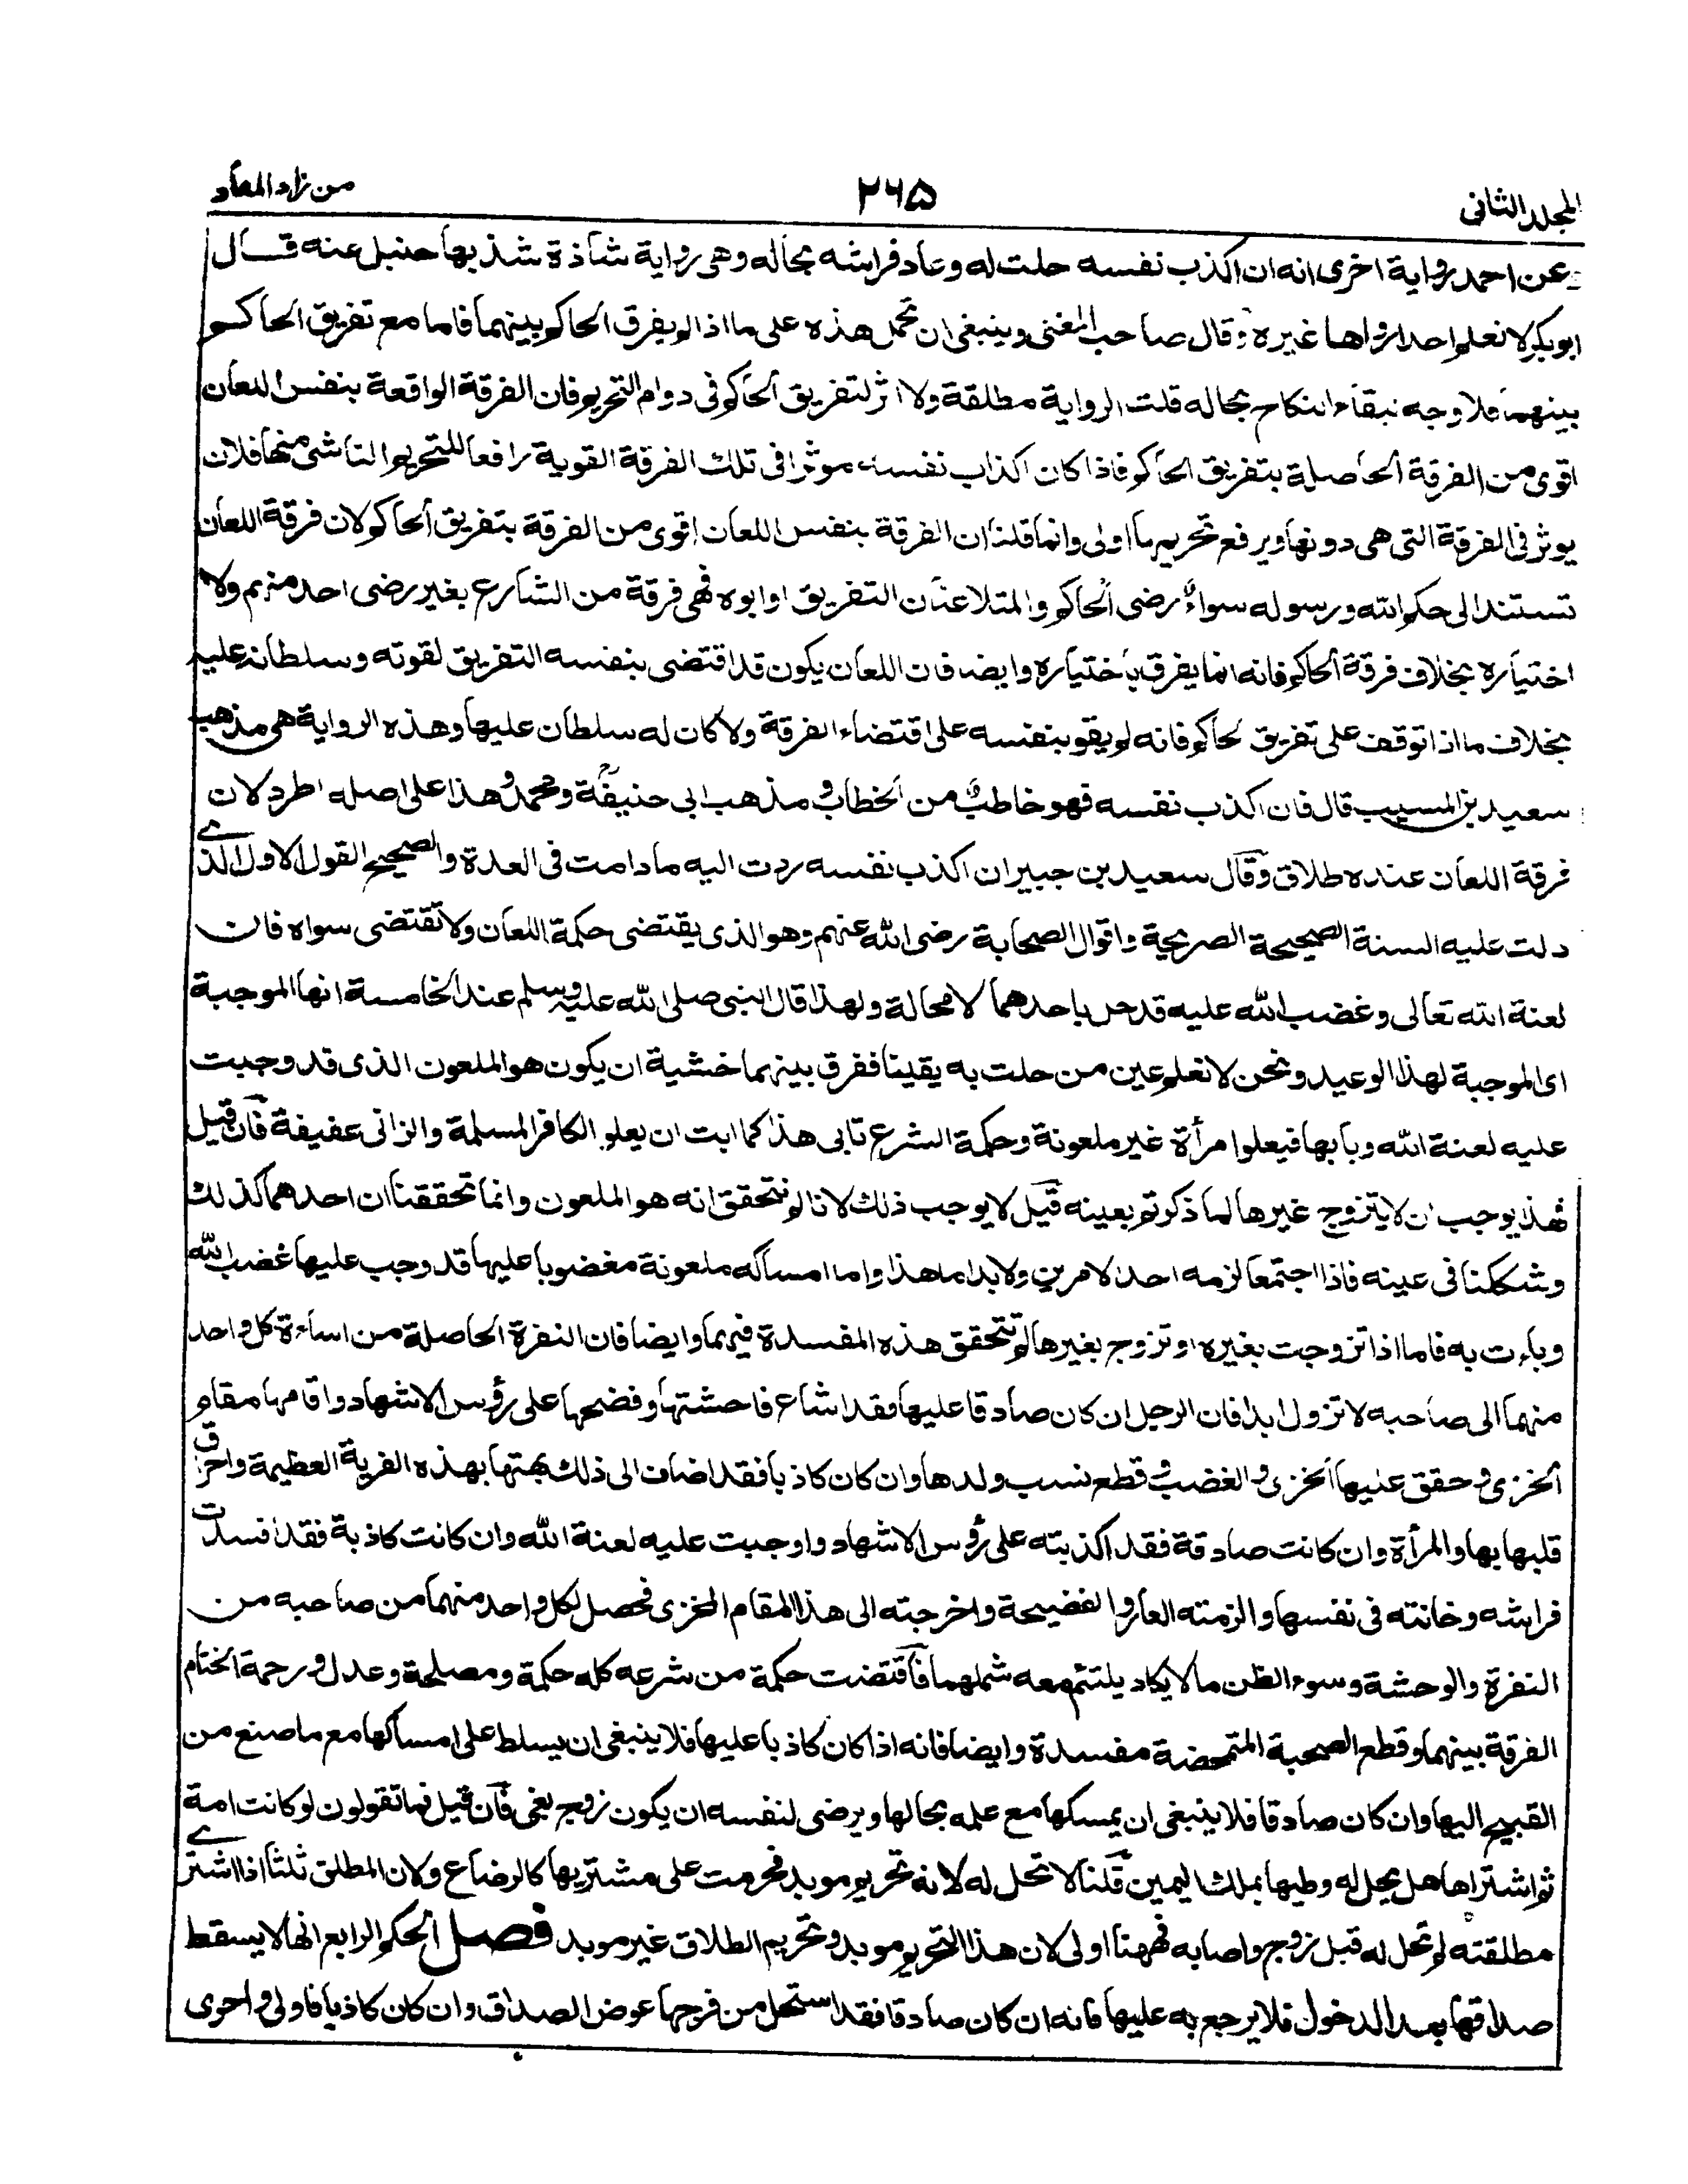 المجلد الثانى
٢٦٥
من زاد المعاد
عن احمد رواية اخرى انه ان اكذب نفسه حلت له وعاد فراشه بحاله وهى رواية شاذة شذ بها حنبل عنه قال
ابو بكر لا نعلم احدا رواها غيره وقال صاحب المغنى وينبغى ان تحمل هذه على ما اذا لم يفرق الحاكم بينهما فاما مع تفريق الحاكم
بينهما فلا وجه لبقاء النكاح بحاله قلت الرواية مطلقة ولا اثر لتفريق الحاكم فى دوام التحريم فان الفرقة الواقعة بنفس اللعان
اقوى من الفرقة الحاصلة بتفريق الحاكم فاذا كان اكذاب نفسه موثرا فى تلك الفرقة القوية رافعا للتحريم الناشى منها فلان
يوثر فى الفرقة التى هى دونها ويرفع تحريمها اولى وانما قلنا ان الفرقة بنفس اللعان اقوى من الفرقة بتفريق الحاكم لان فرقة اللعان
تستند الى حكم الله ورسوله سواء رضى الحاكم والمتلاعنان التفريق او ابوه فهى فرقة من الشارع بغير رضى احد منهم ولا
اختياره بخلاف فرقة الحاكم فانه انما يفرق باختياره وايضا فان اللعان يكون قد اقتضى بنفسه التفريق لقوته وسلطانه عليه
بخلاف ما اذا توقف على تفريق الحاكم فانه لم يقو بنفسه على اقتضاء الفرقة ولا كان له سلطان عليها وهذه الرواية هى مذهب
سعيد بن المسيب قال فان اكذب نفسه فهو خاطب من الخطاب و مذهب ابى حنيفة ومحمد وهذا على اصله اطرد لان
فرقة اللعان عنده طلاق وقال سعيد بن جبير ان اكذب نفسه ردت اليه ما دامت فى العدة والصحيح القول الاول الذى
دلت عليه السنة الصحيحة الصريحة واقوال الصحابة رضى الله عنهم وهو الذى يقتضى حكمة اللعان ولا تقتضى سواه فان
لعنة الله تعالى وغضب الله عليه قد حل باحدهما لا محالة ولهذا قال النبى صلى الله عليه وسلم عند الخامسة انها الموجبة
اى الموجبة لهذا الوعيد ونحن لا نعلم عين من حلت به يقينا ففرق بينهما خشية ان يكون هو الملعون الذى قد وجبت
عليه لعنة الله وبا بها فيعلو امرأة غير ملعونة وحكمة الشرع تابى هذا كما ابت ان يعلو الكافر المسلمة والزانى عفيفة فان قيل
فهذا يوجب ان لا يتزوج غيرها لما ذكرتم بعينه قيل لا يوجب ذلك لانا لم نتحقق انه هو الملعون وانما تحققنا ان احدهما كذلك
وشككنا فى عينه فاذا اجتمعا لزمه احد الامرين ولا بد اما هذا واما امساكه ملعونة مغضوبا عليها قد وجب عليها غضب الله
وباءت به فاما اذا تزوجت بغيره او تزوج بغيرها لم تتحقق هذه المفسدة فيهما وايضا فان النفرة الحاصلة من اساءة كل واحد
منهما الى صاحبه لا تزول ابدا فان الرجل ان كان صادقا عليها فقد اشاع فاحشتها وفضحها على رؤس الاشهاد واقامها مقام
الخزى و حقق عليها الخزى و الغضب و قطع نسب ولدها وان كان كاذبا فقد اضاف الى ذلك بهتها بهذه الفرية العظيمة واحراق
قلبها بها والمرأة وان كانت صادقة فقد اكذبته على رؤس الاشهاد واوجبت عليه لعنة الله وان كانت كاذبة فقد افسدت
فراشه وخانته فى نفسها والزمته العار والفضيحة واخرجته الى هذا المقام المخزى فحصل لكل واحد منهما من صاحبه من
النفرة والوحشة وسوء الظن ما لا يكاد يلتئم معه شملهما فاقتضت حكمة من شرعه كله حكمة ومصلحة وعدل و رحمة انحتام
الفرقة بينهما وقطع الصحبة المتمحضة مفسدة وايضا فانه اذا كان كاذبا عليها فلا ينبغى ان يسلط على امساكها مع ما صنع من
القبيح اليها وان كان صادقا فلا ينبغى ان يمسكها مع علمه بحالها ويرضى لنفسه ان يكون زوج بغى فان قيل فما تقولون لو كانت امة
ثم اشتراها هل يحل له وطيها بملك اليمين قلنا لا تحل له لانه تحريم موبد فحرمت على مشتريها كالرضاع ولان المطلق ثلثا اذا اشترى
مطلقته لم تحل له قبل زوج واصابه فههنا اولى لان هذا التحريم موبد وتحريم الطلاق غير موبد فصل الحكم الرابع انها لا يسقط
صداقها بعد الدخول فلا يرجع به عليها فانه ان كان صادقا فقد استحل من فرجها عوض الصداق وان كان كاذبا فاولى واحرى